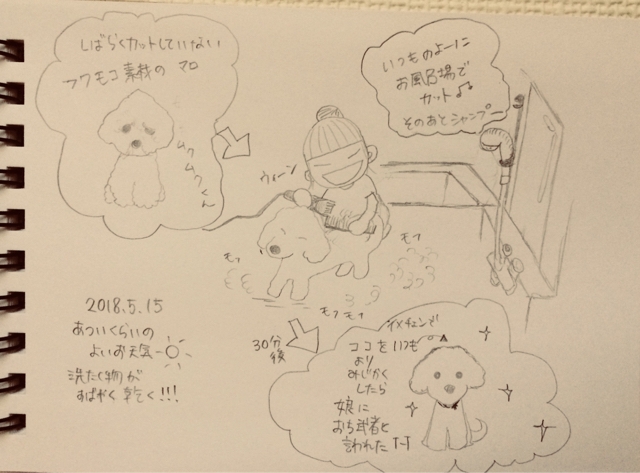 しばらくカットしていない
フワモコ素材の マロ
ムクムクくん
いつものよーに
お風呂場で
カット♪♪
そのあとシャンプー
ウィーン
モフ
モフ
モフモフ
2018.5.15
あついくらいの
よいお天気
洗たく物が
すばやく乾く!!!
30分
後
イメチェンで
ココをいつも
より
みじかく
したら
娘に
おち武者と
言われた T-T